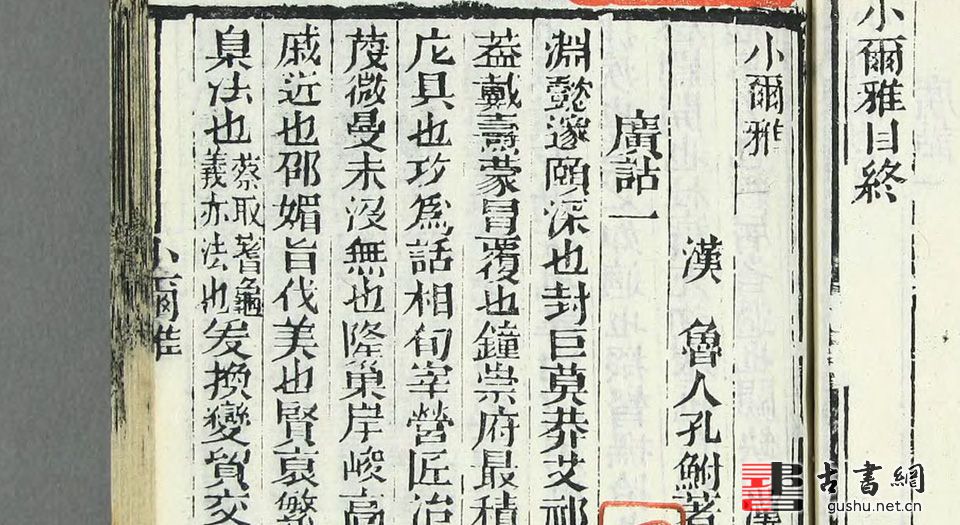 小爾雅目終
小爾雅
漢 魯人孔鮒著
廣詁一
淵懿邃賾深也封巨莫莽艾祁
蓋戴燾蒙冒覆也鐘崇府最積
庀具也攻為話相旬宰營匠治
蔑微曼末沒無也隆巢岸峻高
戚近也邵媚旨伐美也賢哀繁
臬法也蔡取蓍龜義亦法也爰換變貿交
小爾雅
古書網
gushu.net.cn